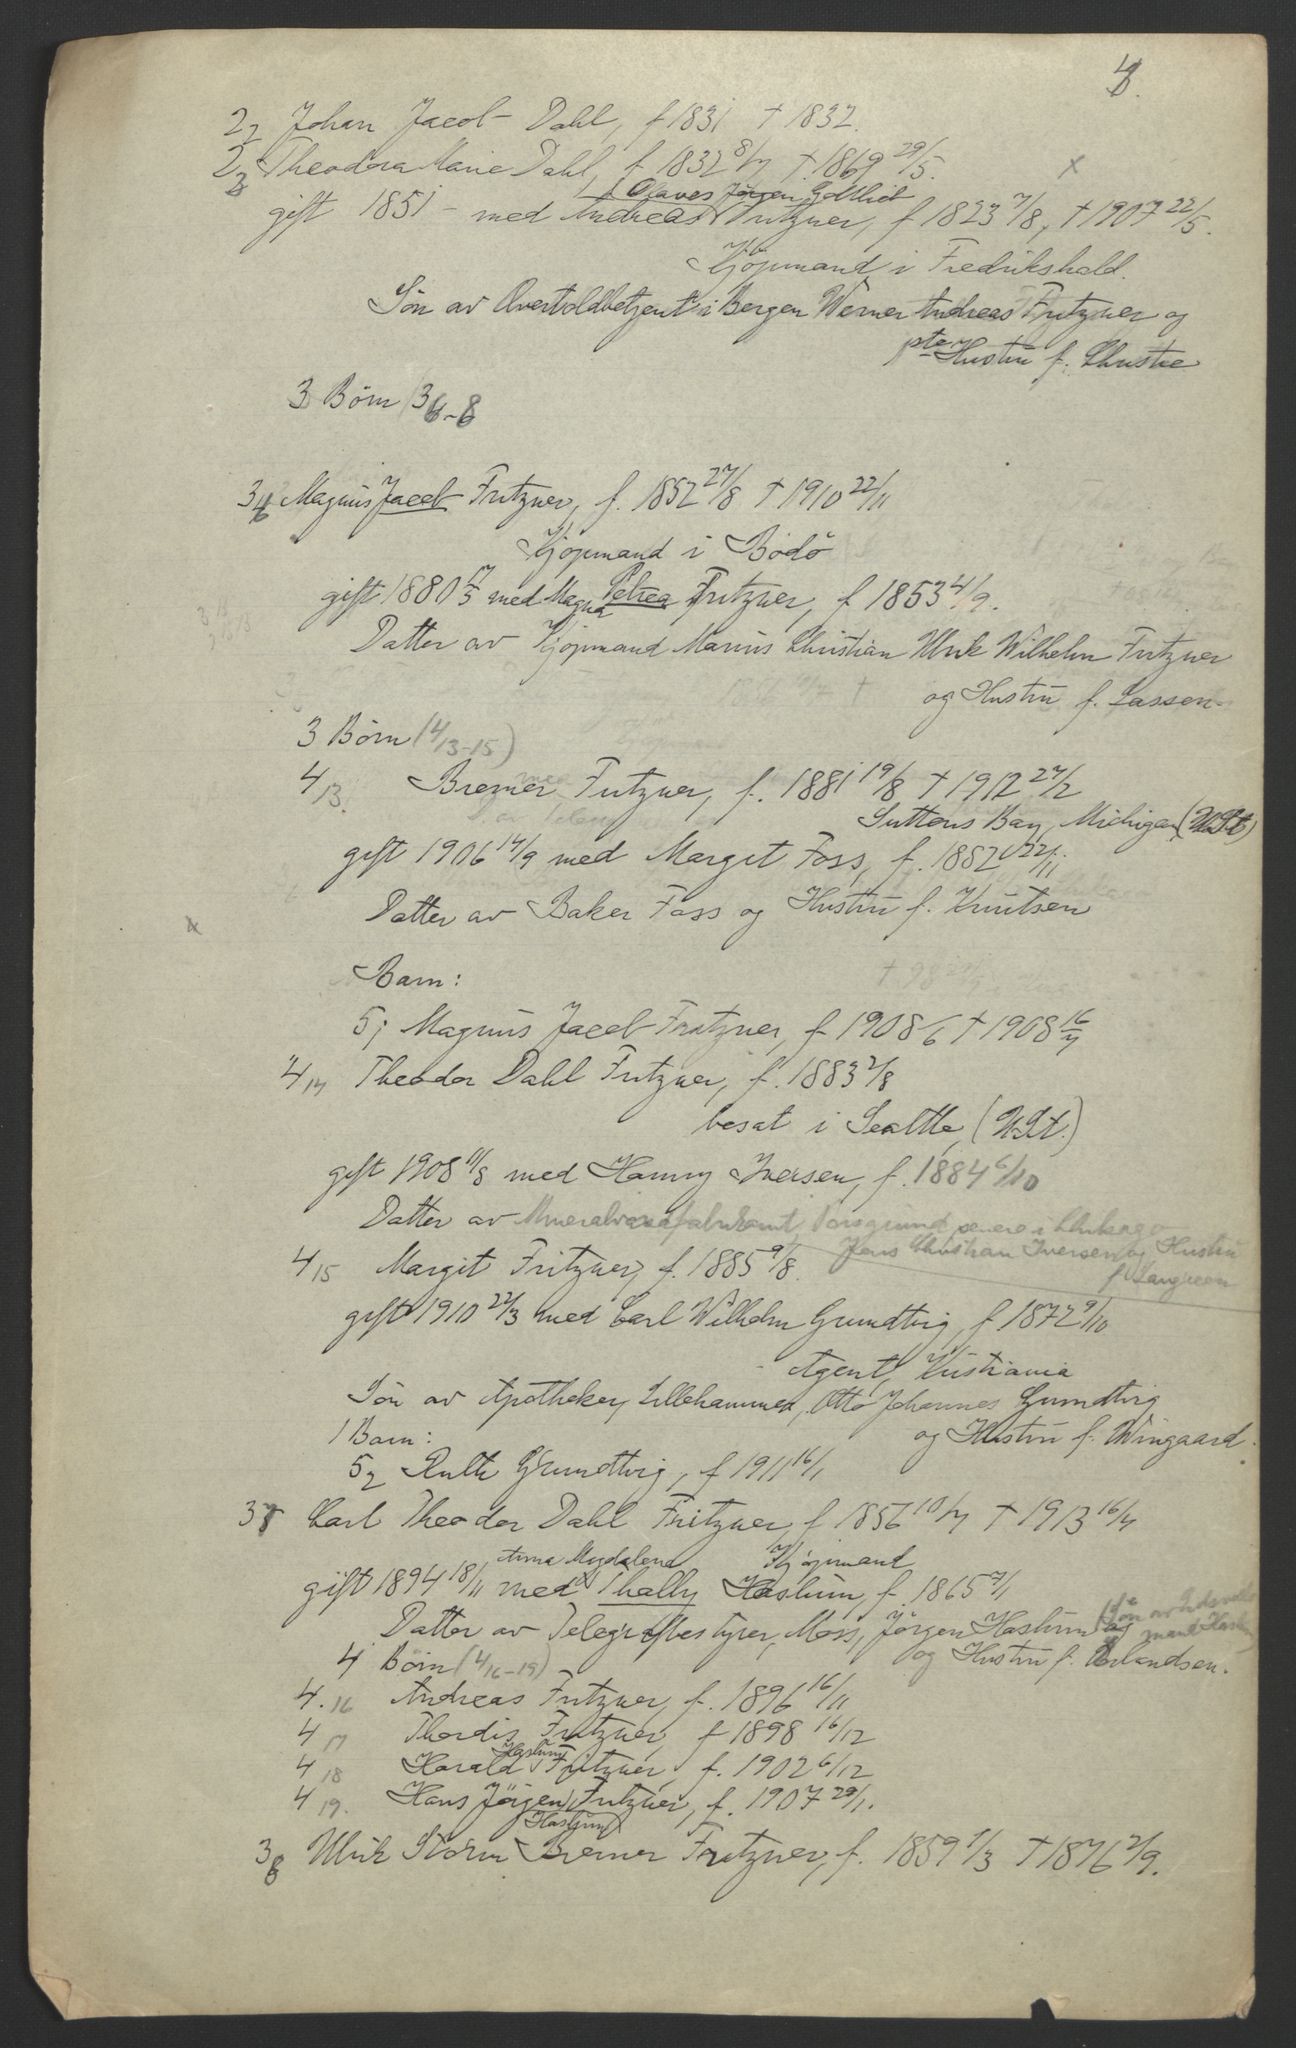 4.
2₂ Johan Jacob Dahl, f 1831 † 1832.
2₃ Theodora Marie Dahl, f 1832 8/7 † 1869 29/5. x
Olaves Jørgen Gottlieb
gift 1851 - med Andreas Fritzner, f 1823 7/8, † 1907 22/5.
Kjøpmand i Fredrikshald.
Søn av Overtoldbetjent i Bergen Werner Andreas Fritzner og
Hustru f. Christie
3 Børn (3 6-8
3 6 Magnus Jacob Fritzner, f. 1852 27/8 † 1910 22/11
Kjøpmand i Bodö
gift 1880 17/5 med Magna Petrea Fritzner, f 1853 4/9.
Datter av Kjøpmand Marius Christian Ulrik Wilhelm Fritzner
og Hustru f. Lassen.
3 Børn (4/13-15)
4 13. Bremer Fritzner, f. 1881 19/8 † 1912 27/2
Suttons Bay, Michigan (U.St)
gift 1906 14/9 med Margit Foss, f. 1882 22/11
Datter av Baker Foss og Hustru f. Knutsen
x
Barn:
5 1 Magnus Jacob Fritzner, f 1908 /6 † 1908 16/7
4 14 Theodor Dahl Fritzner, f. 1883 2/8
bosat i Seattle, (U.St.)
gift 1908 11/8 med Hanny Iversen, f. 1884 6/10
Datter av Mineralvandfabrikant, Porsgrund senere i Chikago
Jens Christian Iversen og Hustru
f. Langreen
4 15 Margit Fritzner, f. 1885 9/8.
gift 1910 22/3 med Carl Wilhelm Grundtvig, f 1872 9/10
Agent, Kristiania
Søn av Apotheker, Lillehammer, Otto Johannes Grundtvig
og Hustru f. Wingaard.
1 Barn:
5 2 Ruth Grundtvig, f 1911 16/1
3 7 Carl Theodor Dahl Fritzner, f 1856 10/7 † 1913 16/4
Kjøpmand
Anna Magdalena
gift 1894 18/11 med Thally Haslum, f. 1865 7/1
Datter av Telegrafbestyrer, Moss, Jørgen Haslum (Søn av
og Hustru f. Erlandsen.
4 Børn (4/16-19)
4. 16 Andreas Fritzner, f. 1896 16/11
4 17 Thordis Fritzner, f 1898 16/12
4 18 Harald Haslum Fritzner, f. 1902 6/12
4 19. Hans Jörgen Haslum Fritzner, f. 1907 29/1.
3 8 Ulrik Storm Bremer Fritzner, f. 1859 1/3 † 1876 2/9.